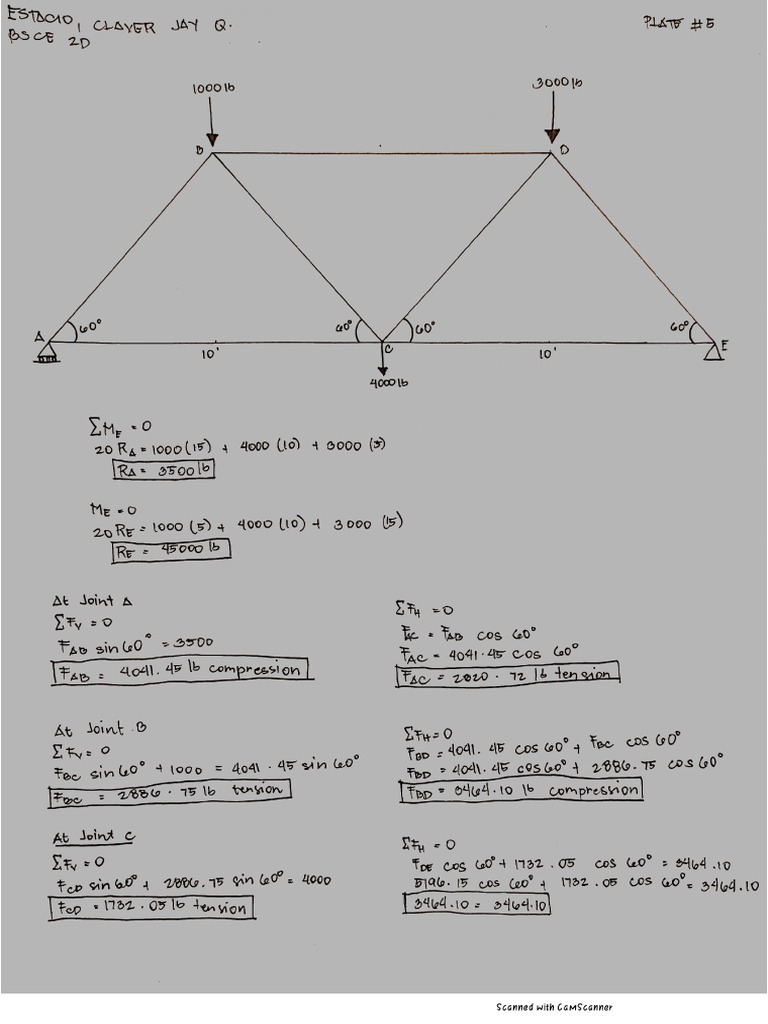 ESTACIO, CLAVER JAY Q.
BSCE 2D
PLATE #5
1000 lb
3000 lb
B
D
A
60°
60°
60°
60°
E
10'
C
10'
4000 lb
ΣM_E = 0
20 R_A = 1000 (15) + 4000 (10) + 3000 (5)
R_A = 3500 lb
M_E = 0
20 R_E = 1000 (5) + 4000 (10) + 3000 (15)
R_E = 45000 lb
At Joint A
ΣF_V = 0
F_AB sin 60° = 3500
F_AB = 4041.45 lb compression
ΣF_H = 0
F_AC = F_AB cos 60°
F_AC = 4041.45 cos 60°
F_AC = 2020.72 lb tension
At Joint B
ΣF_V = 0
F_BC sin 60° + 1000 = 4041.45 sin 60°
F_BC = 2886.75 lb tension
ΣF_H = 0
F_BD = 4041.45 cos 60° + F_BC cos 60°
F_BD = 4041.45 cos 60° + 2886.75 cos 60°
F_BD = 3464.10 lb compression
At Joint C
ΣF_V = 0
F_CD sin 60° + 2886.75 sin 60° = 4000
F_CD = 1732.05 lb tension
ΣF_H = 0
F_DE cos 60° + 1732.05 cos 60° = 3464.10
5196.15 cos 60° + 1732.05 cos 60° = 3464.10
3464.10 = 3464.10
Scanned with CamScanner